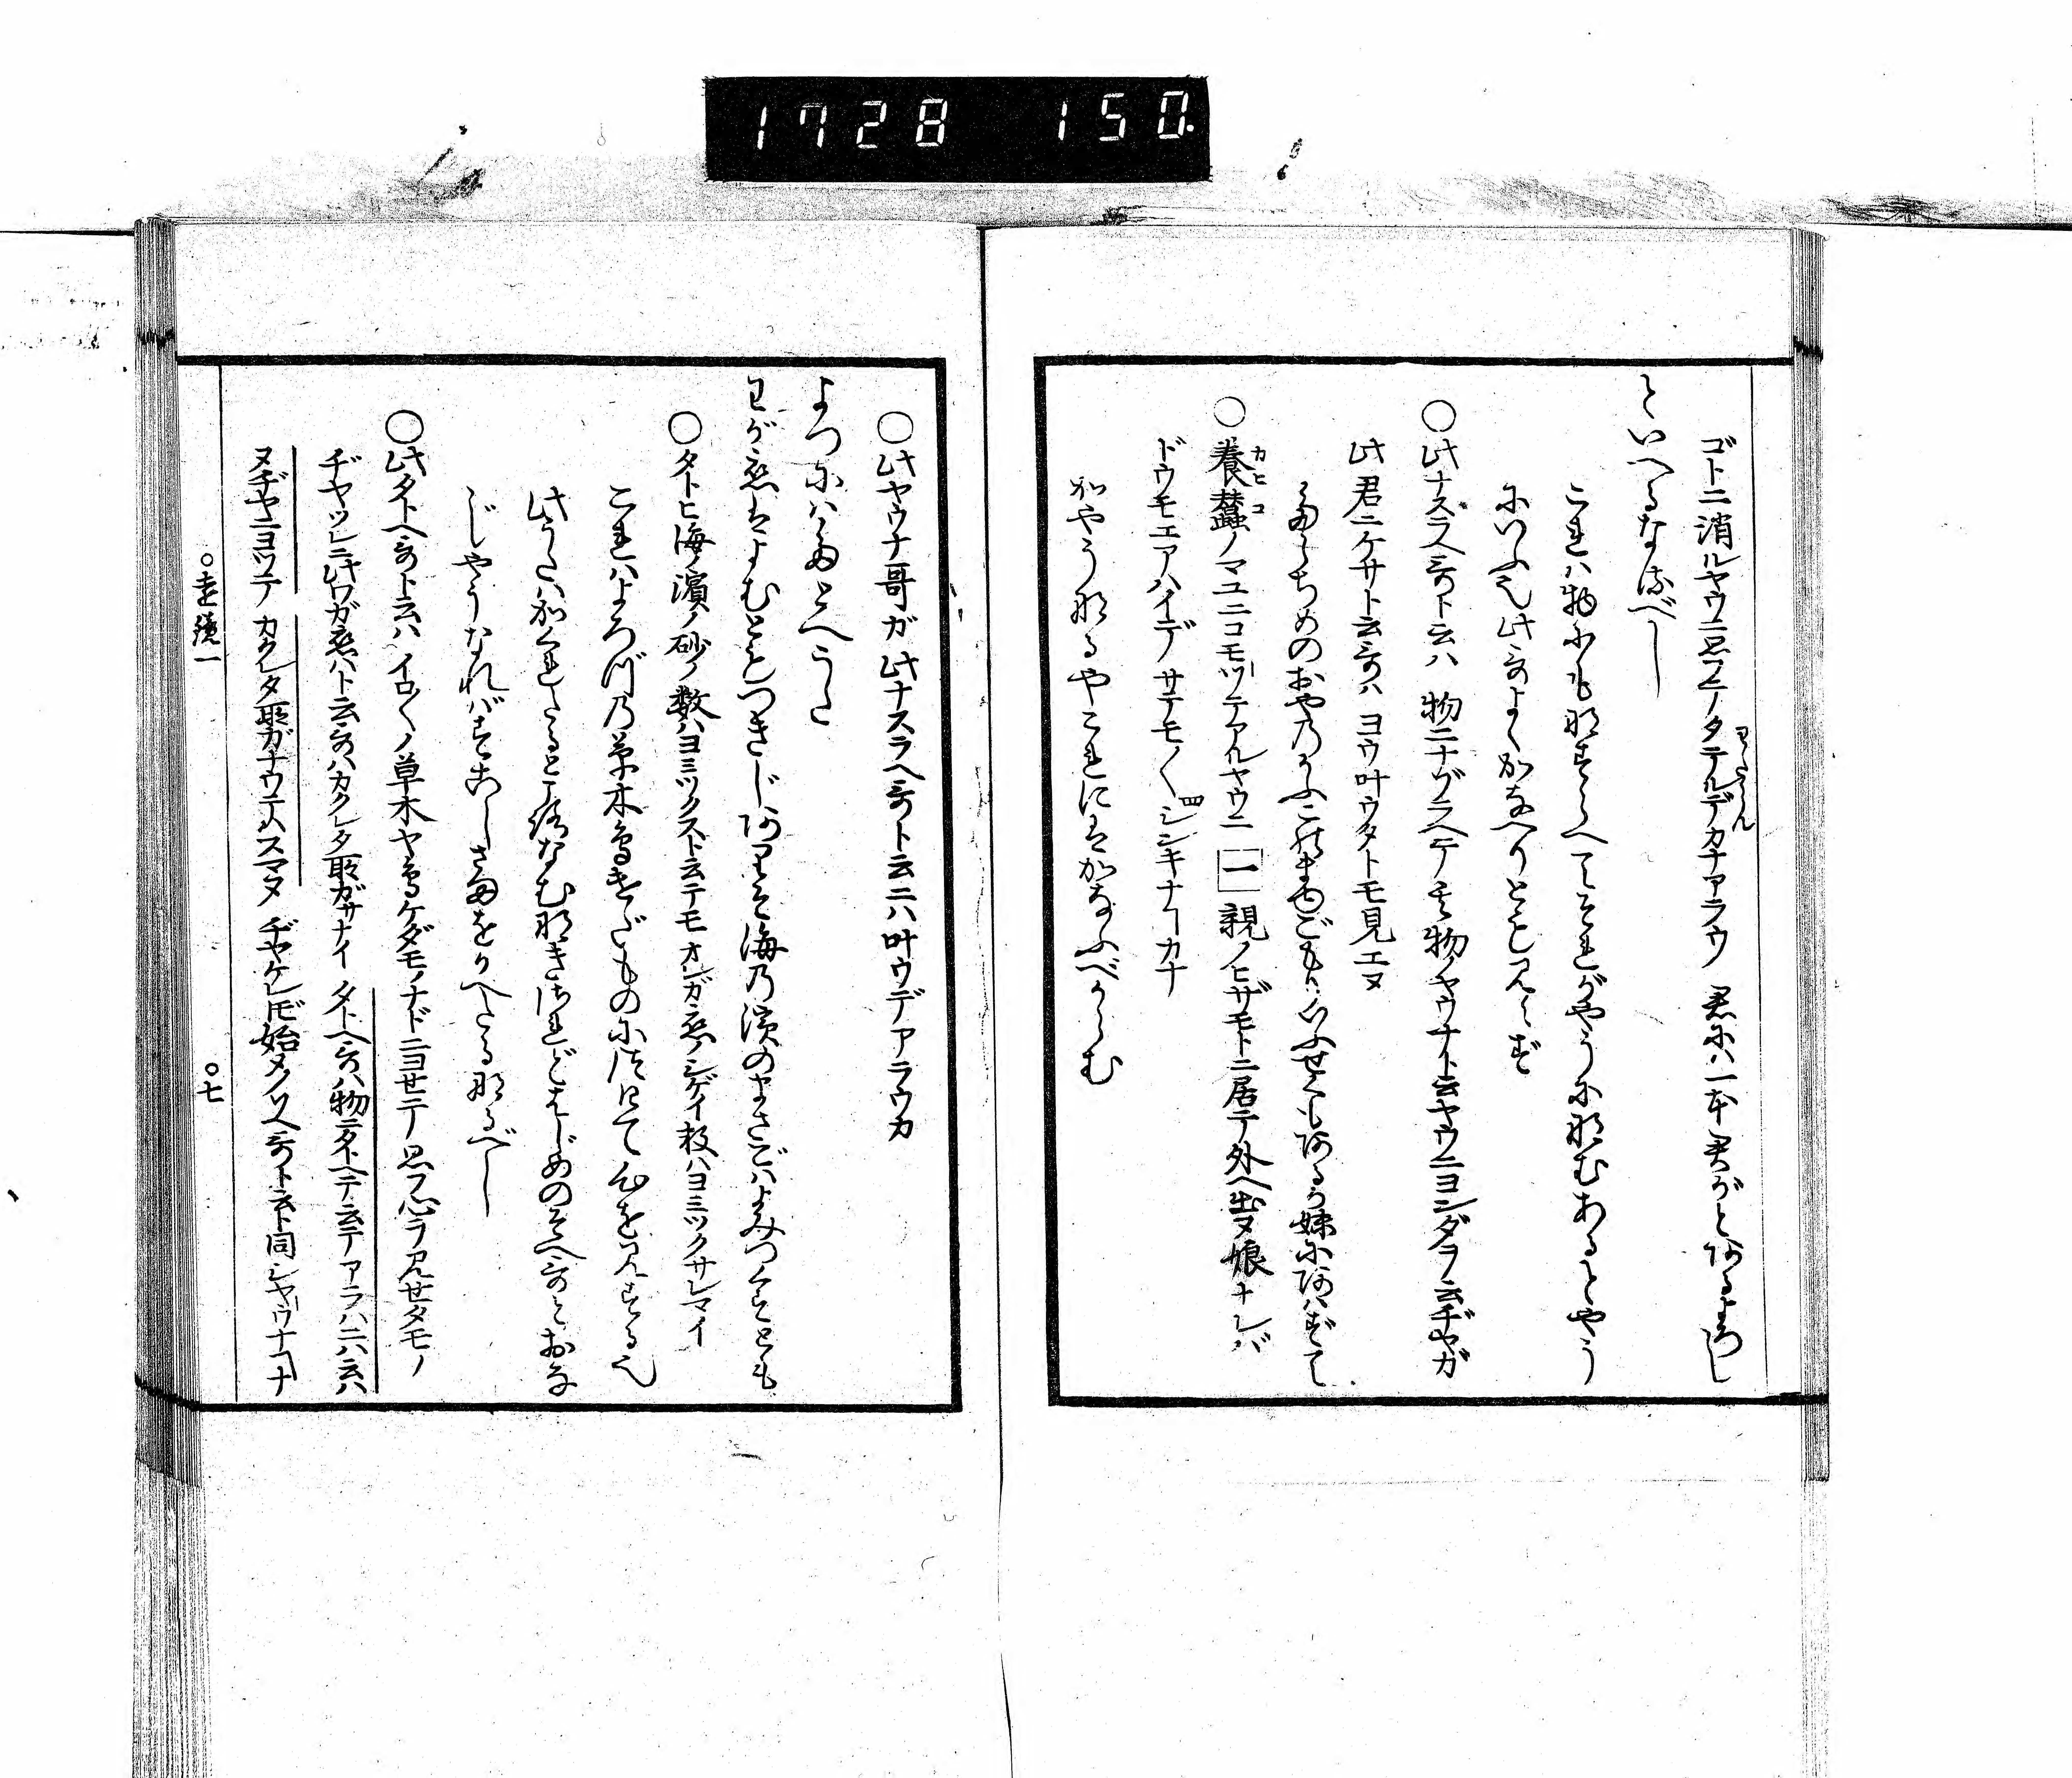 1728 150
ゴトニ消ルヤウニ思フテノタテルデカナアラウ 君にハ一本君がとあるよろし
わたくん
といへるなるべし
これハ物にもなずらへてそれがやうになむあるとやう
にいふ也此哥よくかなへりとも見えず
〇此ナズラヘ哥ト云ハ 物ニナヅラヘテ其物ノヤウナト云ヤウニヨンダヲ云ヂヤガ
此君ニケサト云哥ハ ヨウ叶ウタトモ見エヌ
たらちめのおやのかふこのまゆごもりいぶせくもあるか妹にあはずて
〇養蠶ノマユニコモツテアルヤウニ 一 親ノヒザモトニ居テ外ヘ出ヌ娘ナレバ
カヒコ
ドウモエアハイデ サテモ〱四シンキナーカナ
かやうなるやこれにはかなふべからむ
〇此ヤウナ哥ガ此ナズラヘ哥ト云ニハ叶ウデアラウカ
よつにハたとへうた
わが恋はよむともつきじありそ海の濱のまさごハよみつくすとも
〇タトヒ海ノ濱ノ砂ノ数ハヨミツクスト云テモ オレガ恋ノシゲイ数ハヨミツクサレマイ
これハよろづの草木鳥けだものにつけて心を見する也
此うたハかくれたる所なむなきされどはじめのそへ哥とおな
じやうなればすこしさまをかへたるなるべし
〇此タトヘ哥ト云ハ イロ〱ノ草木ヤ鳥ケダモノナドニヨセテ 思フ心ヲ見せタモノ
ヂヤツレニ此ワガ恋ハト云哥ハカクレタ所ガサナイ タトヘ哥ハ物ニタトヘテ云テアラハニハ云ハ
ヌヂヤニヨツテ カクレタ所ガナウテハスマヌ ヂヤケレドモ始メノソヘ哥ト云ト同シヤウナコナ
〇遠鏡一 〇七